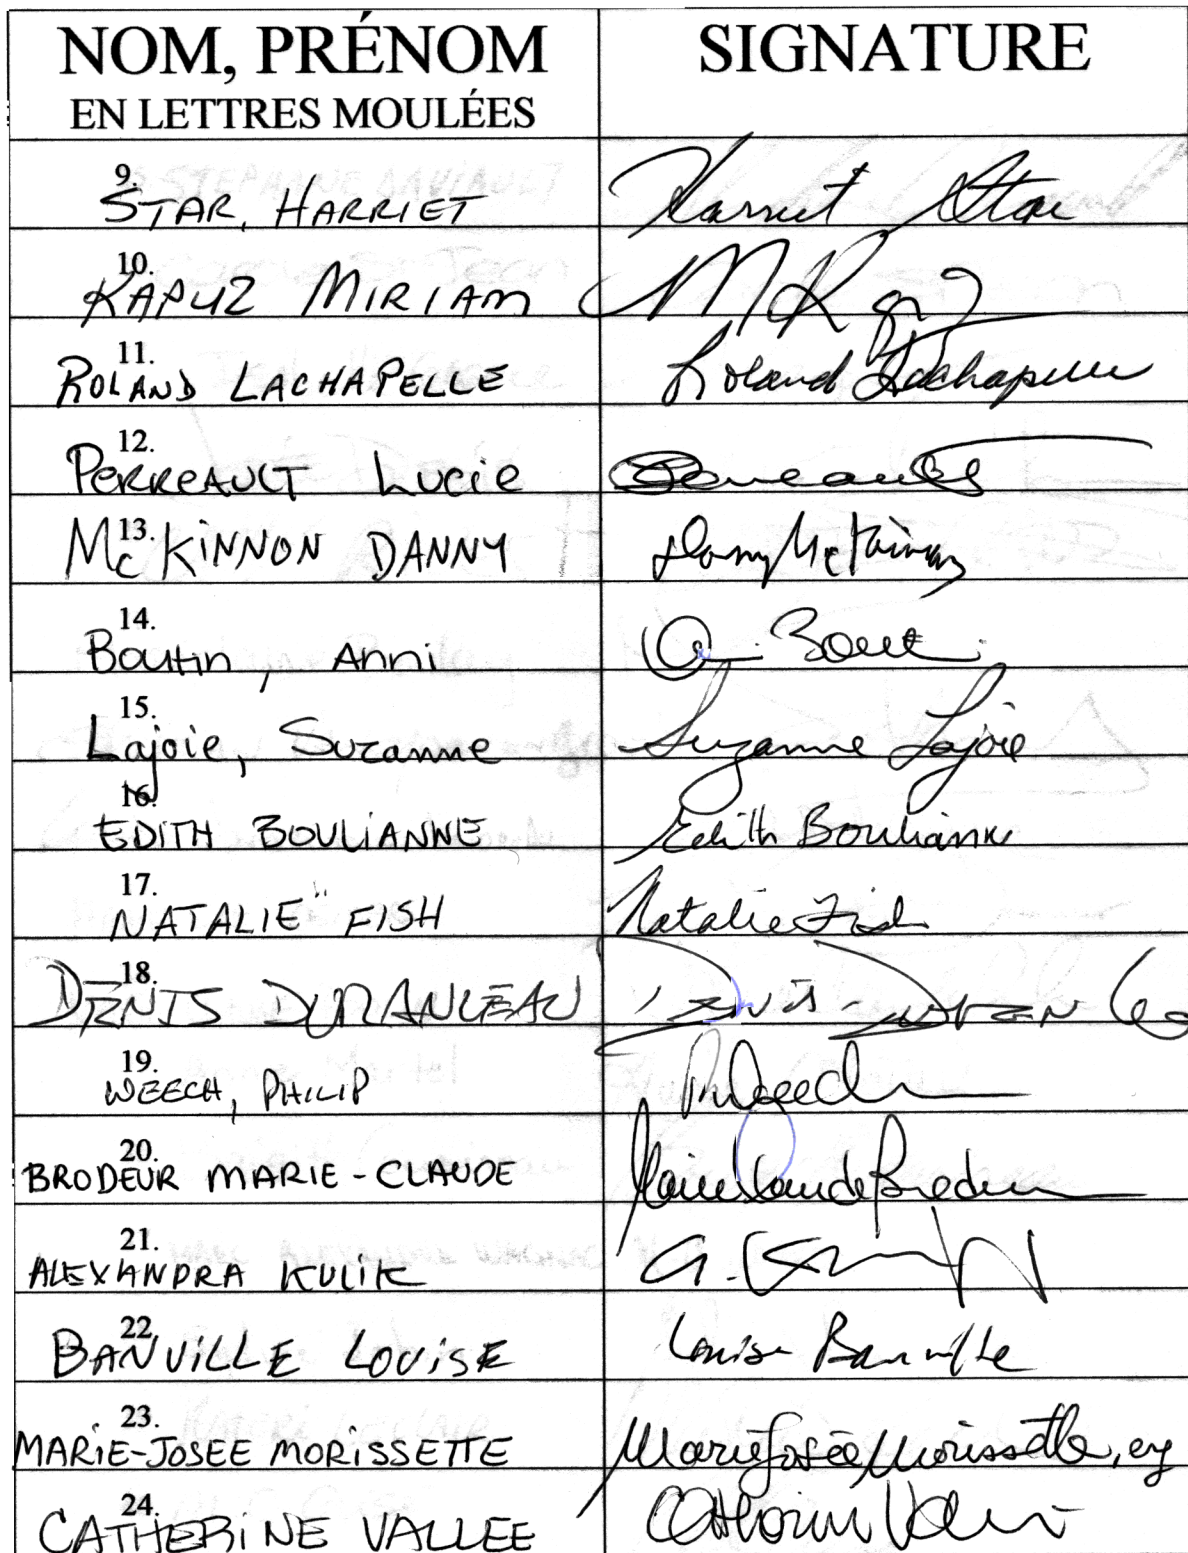 NOM, PRÉNOM SIGNATURE
EN LETTRES MOULÉES
9.
STAR, HARRIET Harriet Star
10.
KAPUZ MIRIAM
11.
ROLAND LACHAPELLE Roland Lachapelle
12.
PERREAULT Lucie Perreault
13.
McKINNON DANNY Danny McKinnon
14.
Boutin, Anni
15.
Lajoie, Suzanne Suzanne Lajoie
16.
EDITH BOULIANNE Edith Boulianne
17.
NATALIE FISH Natalie Fish
18.
DENIS DURANLEAU
19.
WEECH, PHILIP
20.
BRODEUR MARIE-CLAUDE Marie Claude Brodeur
21.
ALEXANDRA KULIK
22.
BANVILLE LOUISE Louise Banville
23.
MARIE-JOSEE MORISSETTE Marie Josée Morissette,
24.
CATHERINE VALLEE